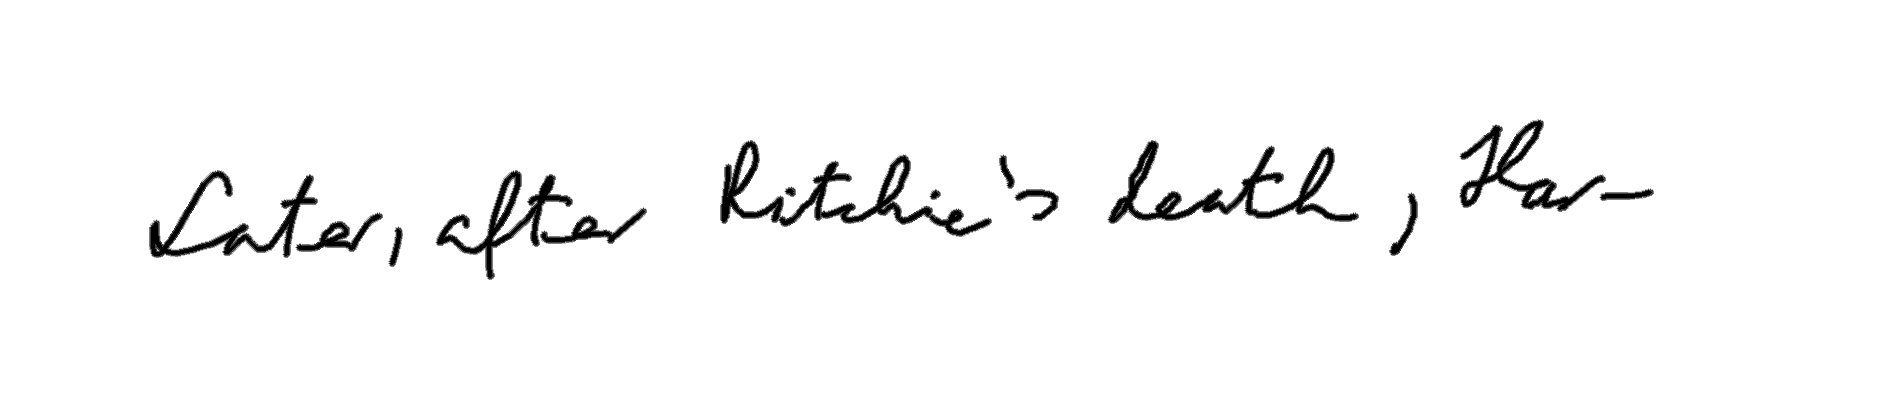 Later, after Ritchie's death, Har-